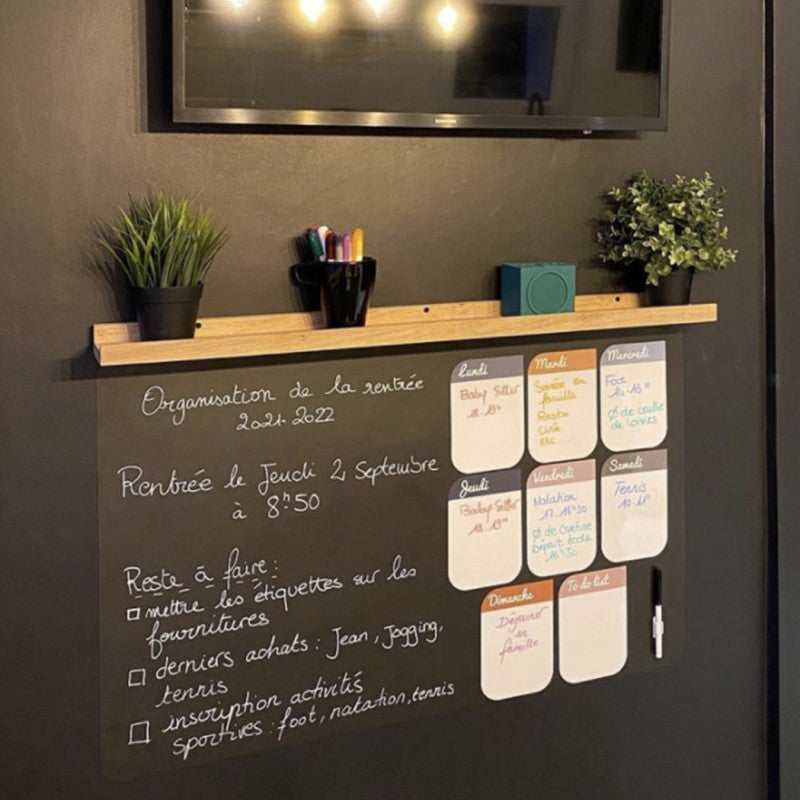 SAMSUNG
Organisation de la rentrée
2021-2022
Rentrée le Jeudi 2 Septembre
à 8h50
Reste à faire :
mettre les étiquettes sur les
fournitures
derniers achats : Jean, Jogging,
tennis
inscription activités
sportives : foot, natation, tennis
Lundi
Baby Sitter
18-19h
Mardi
Soirée en
famille
Resto
Ciné
Etc...
Mercredi
Foot
14-15h
Ø de
Jeudi
Baby Sitter
18-19h
Vendredi
Natation
17-18h30
Ø de cantine
Départ école
16h30
Samedi
Tennis
10-11h
Dimanche
Déjeuner
en
famille
To do list